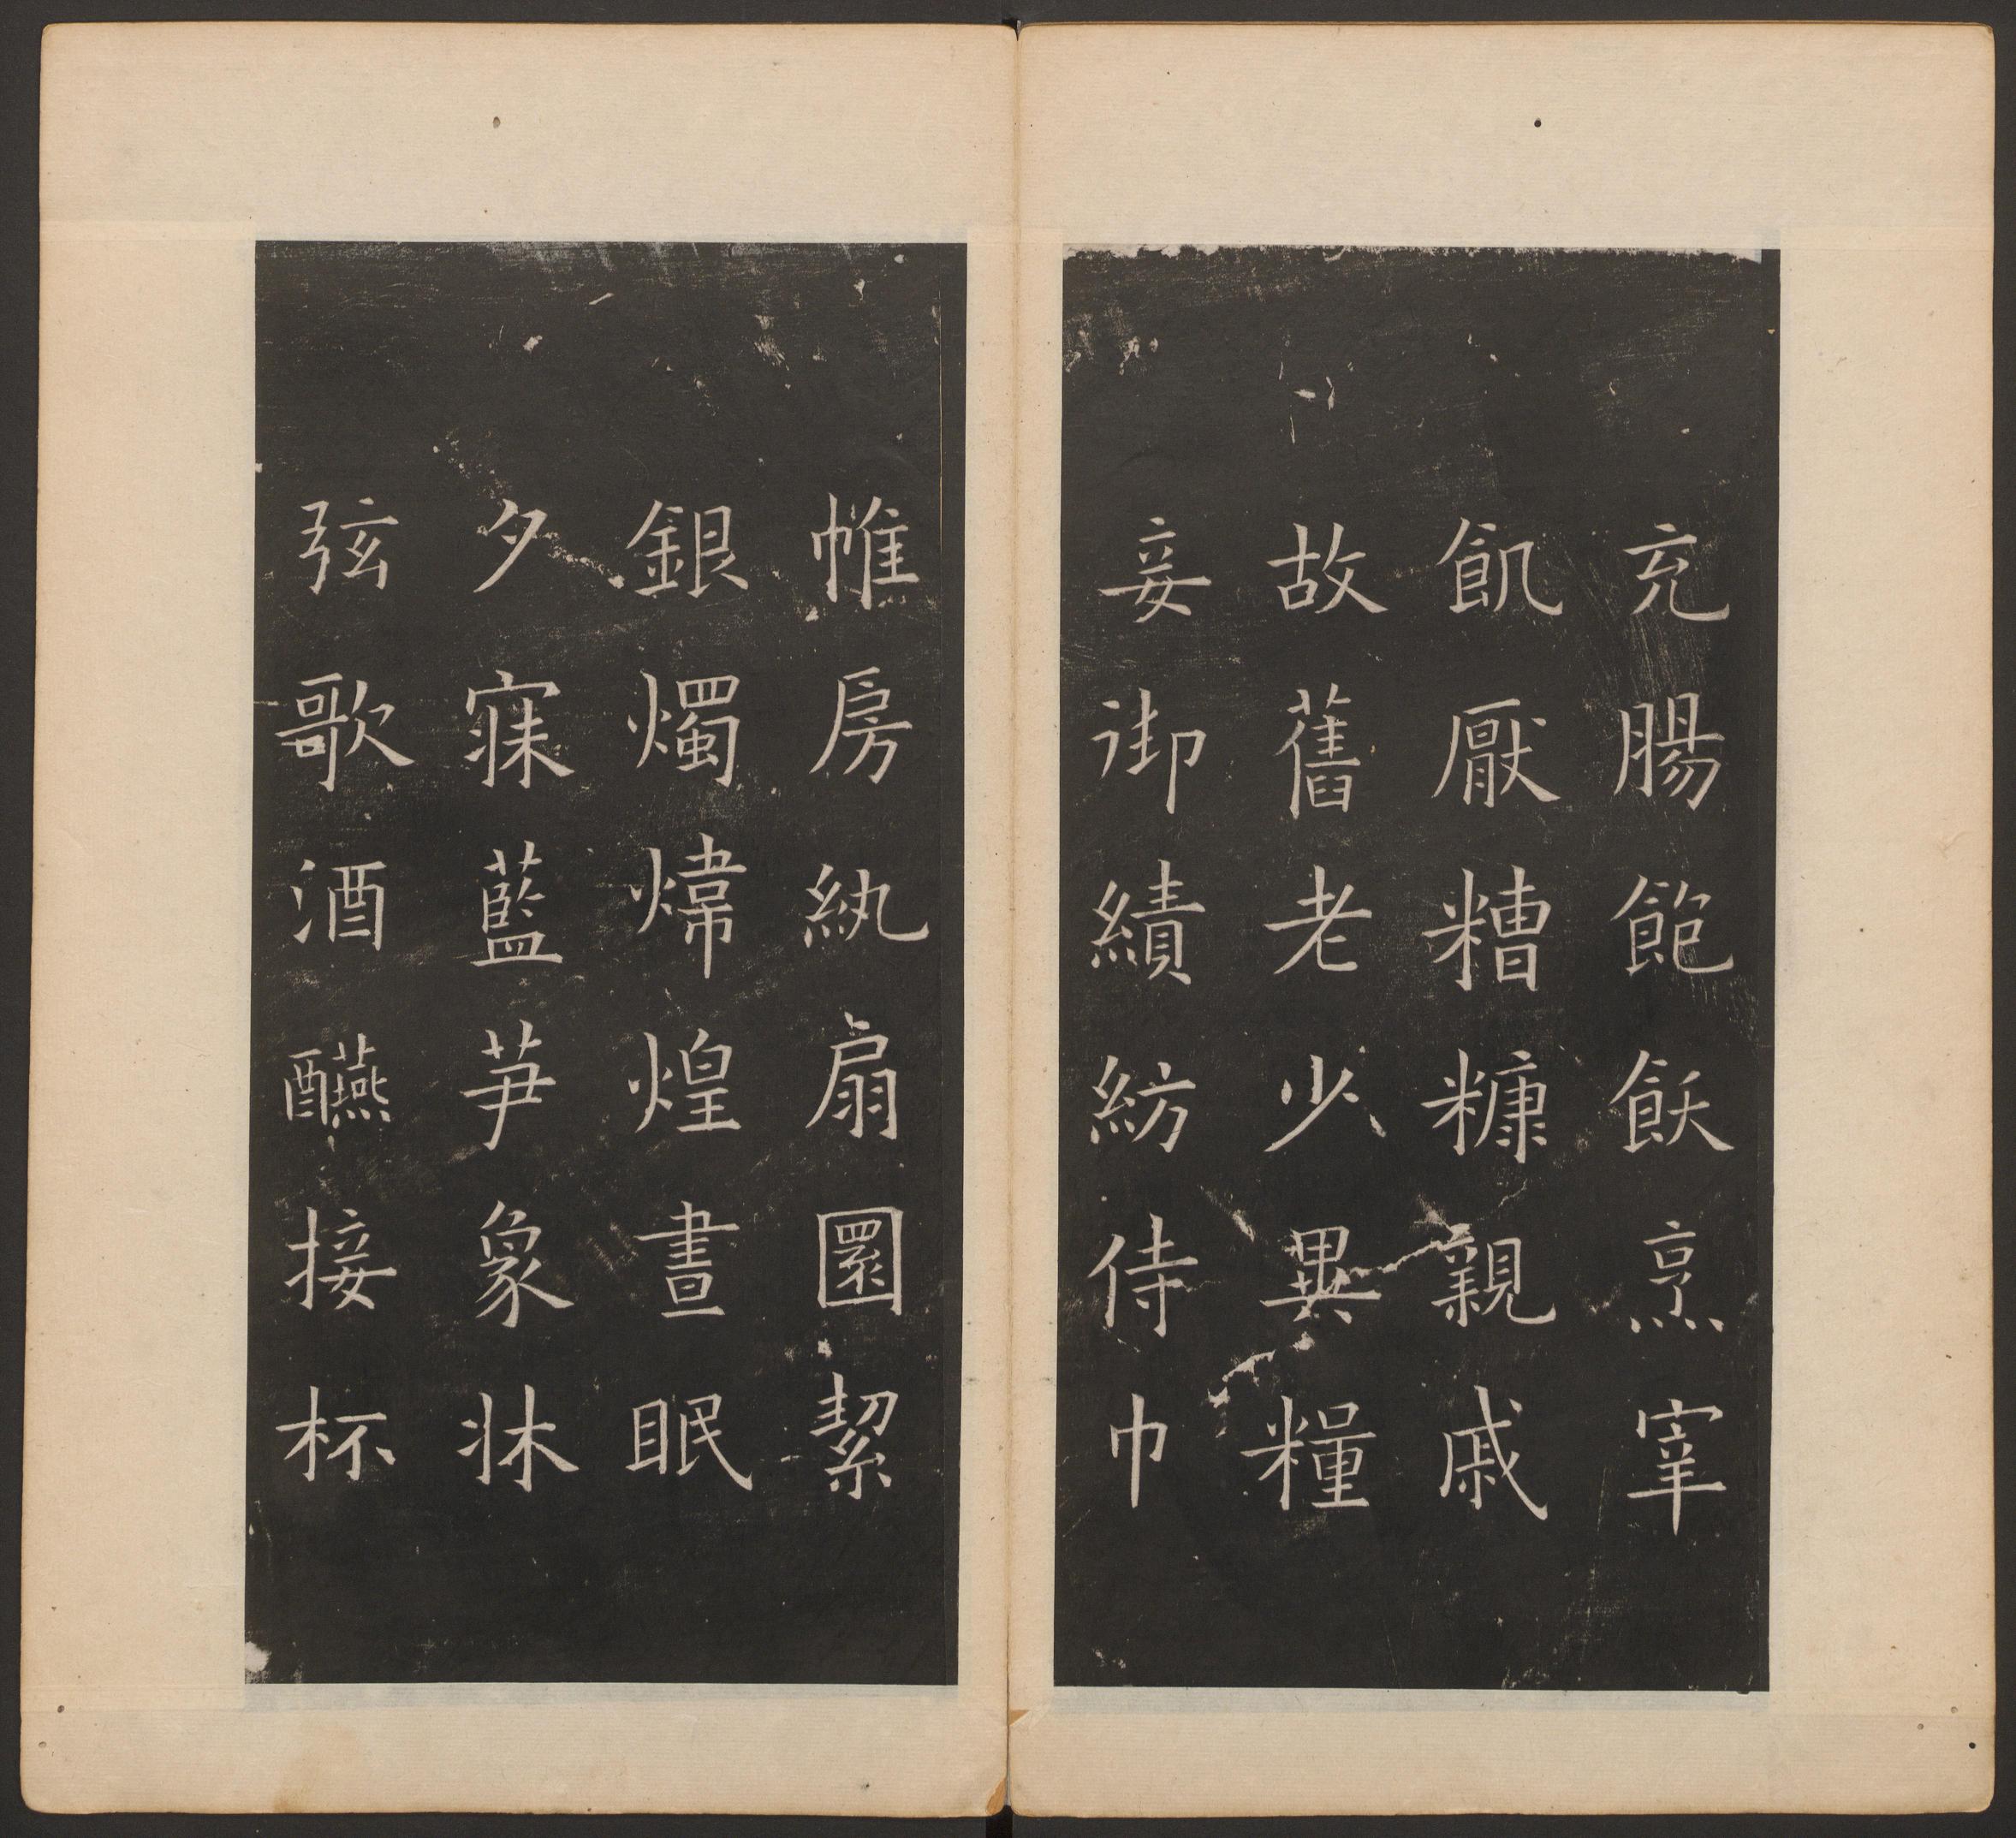 充腸飽飫烹宰
飢厭糟糠親戚
故舊老少異糧
妾御績紡侍巾
帷房紈扇圓絜
銀燭煒煌晝眠
夕寐藍笋象牀
弦歌酒讌接杯